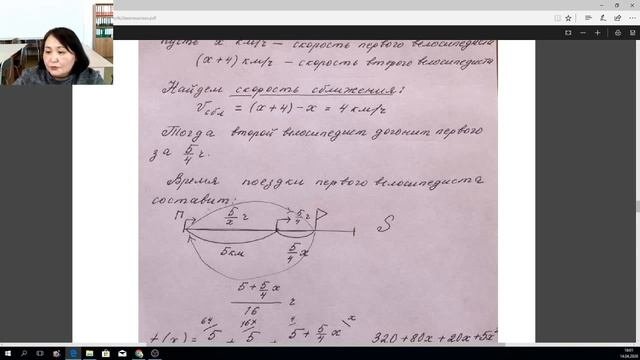 пусть x км/ч – скорость первого велосипедиста
(x+4) км/ч – скорость второго велосипедиста
Найдем скорость сближения:
Vсбл = (x+4) – x = 4 км/ч
Тогда второй велосипедист догонит первого
за 5/4 ч.
Время поездки первого велосипедиста
составит:
П 5/x ч 5/4 ч S
5км 5/4 x
(5 + 5/4 x)/16 ч
t(x) = 5 + 5 + 5 + 5/4 x 320+80x+20x+5x²
14.04.2020